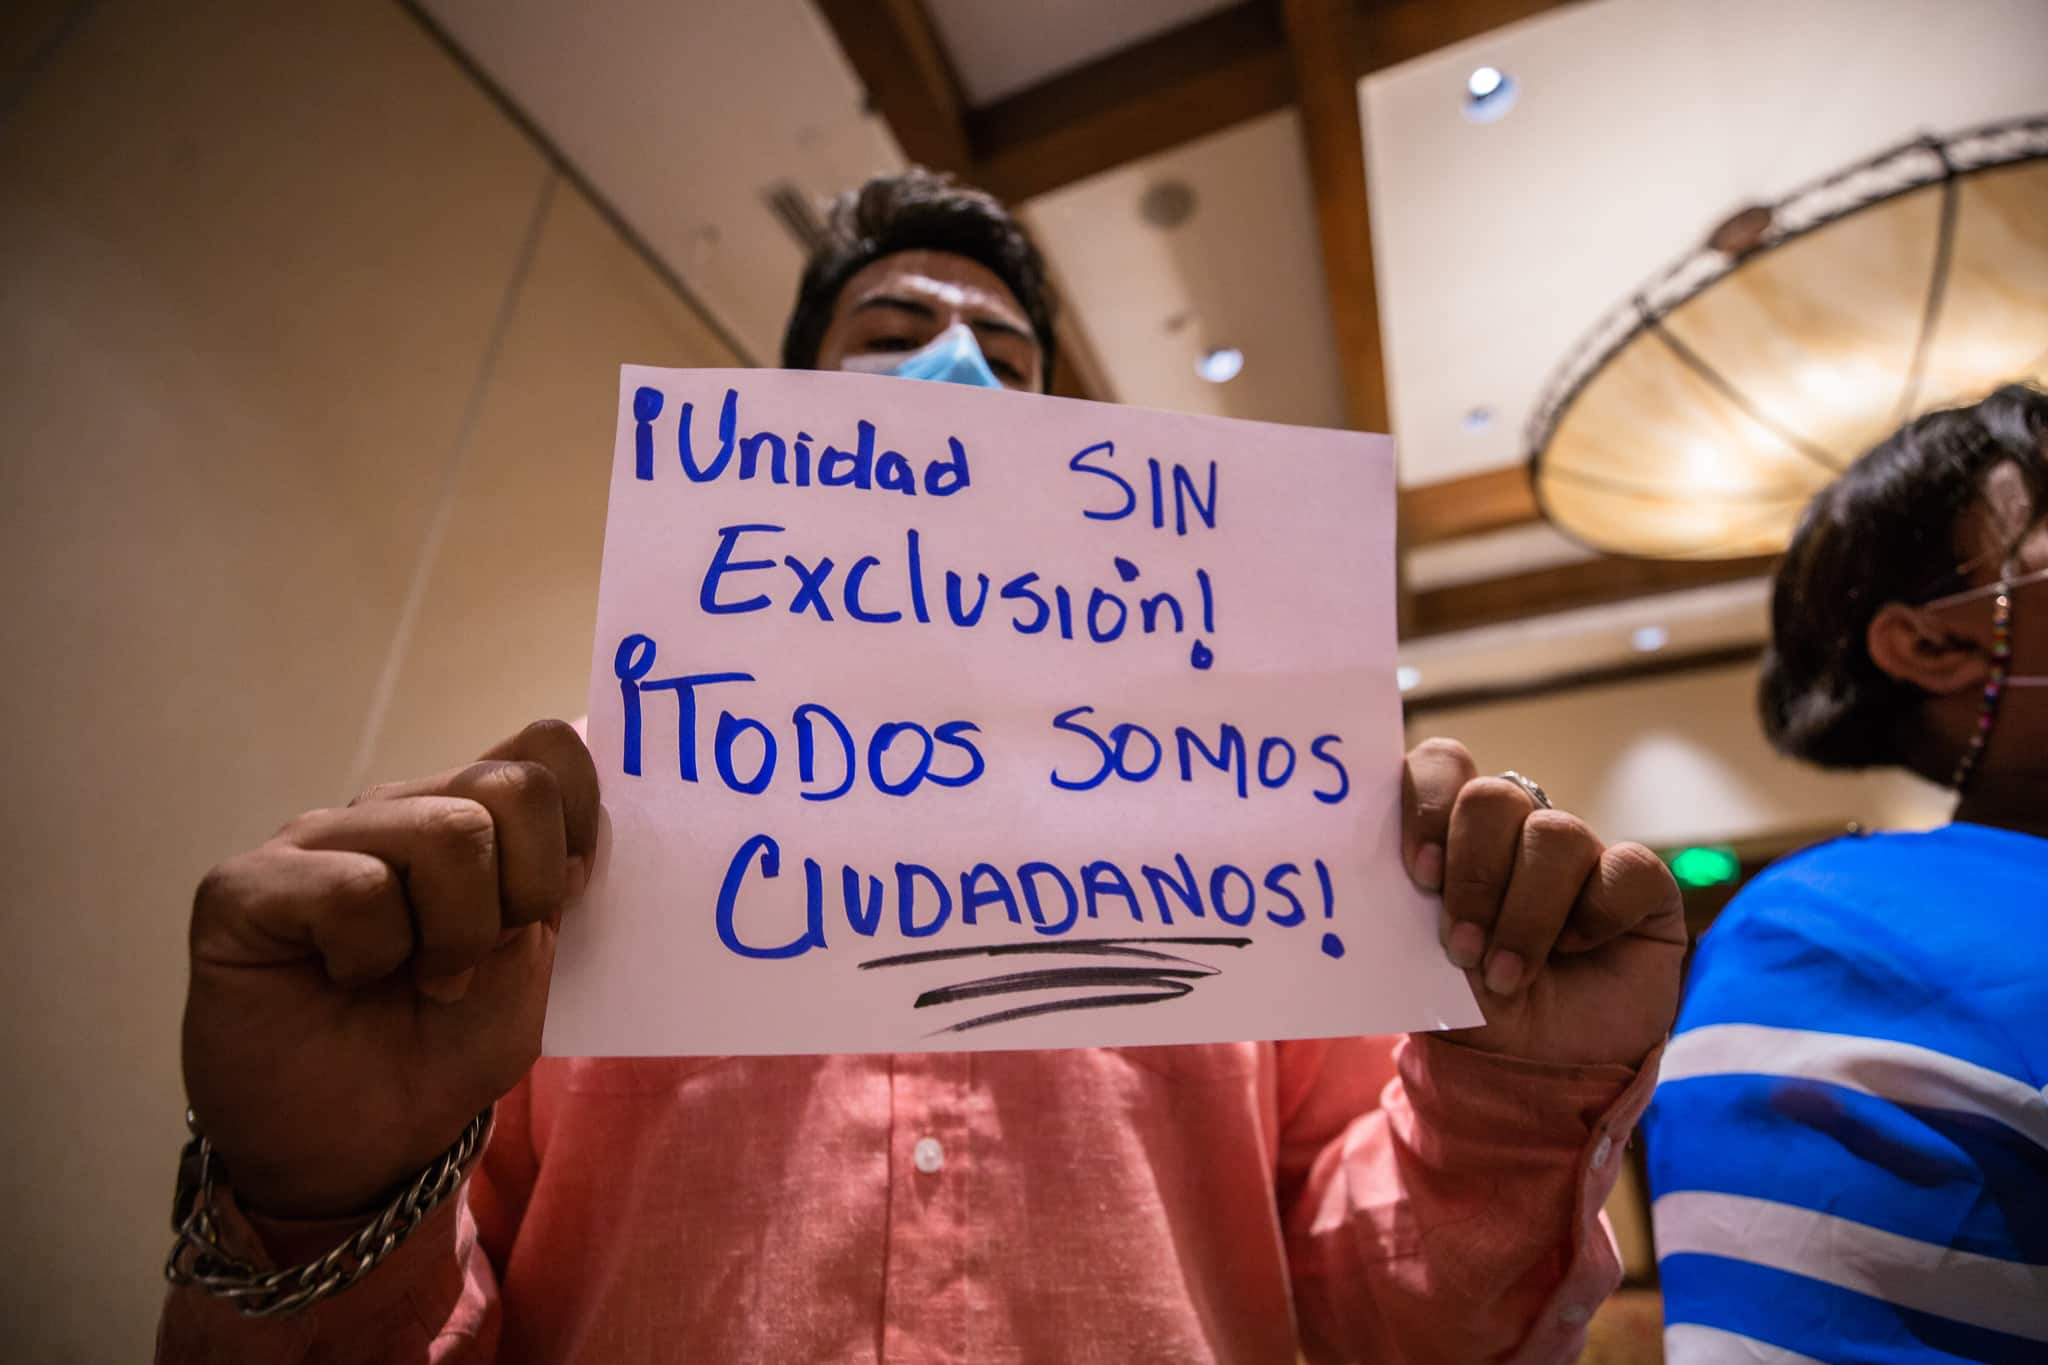 ¡Unidad SIN
Exclusión!
¡TODOS SOMOS
CIUDADANOS!